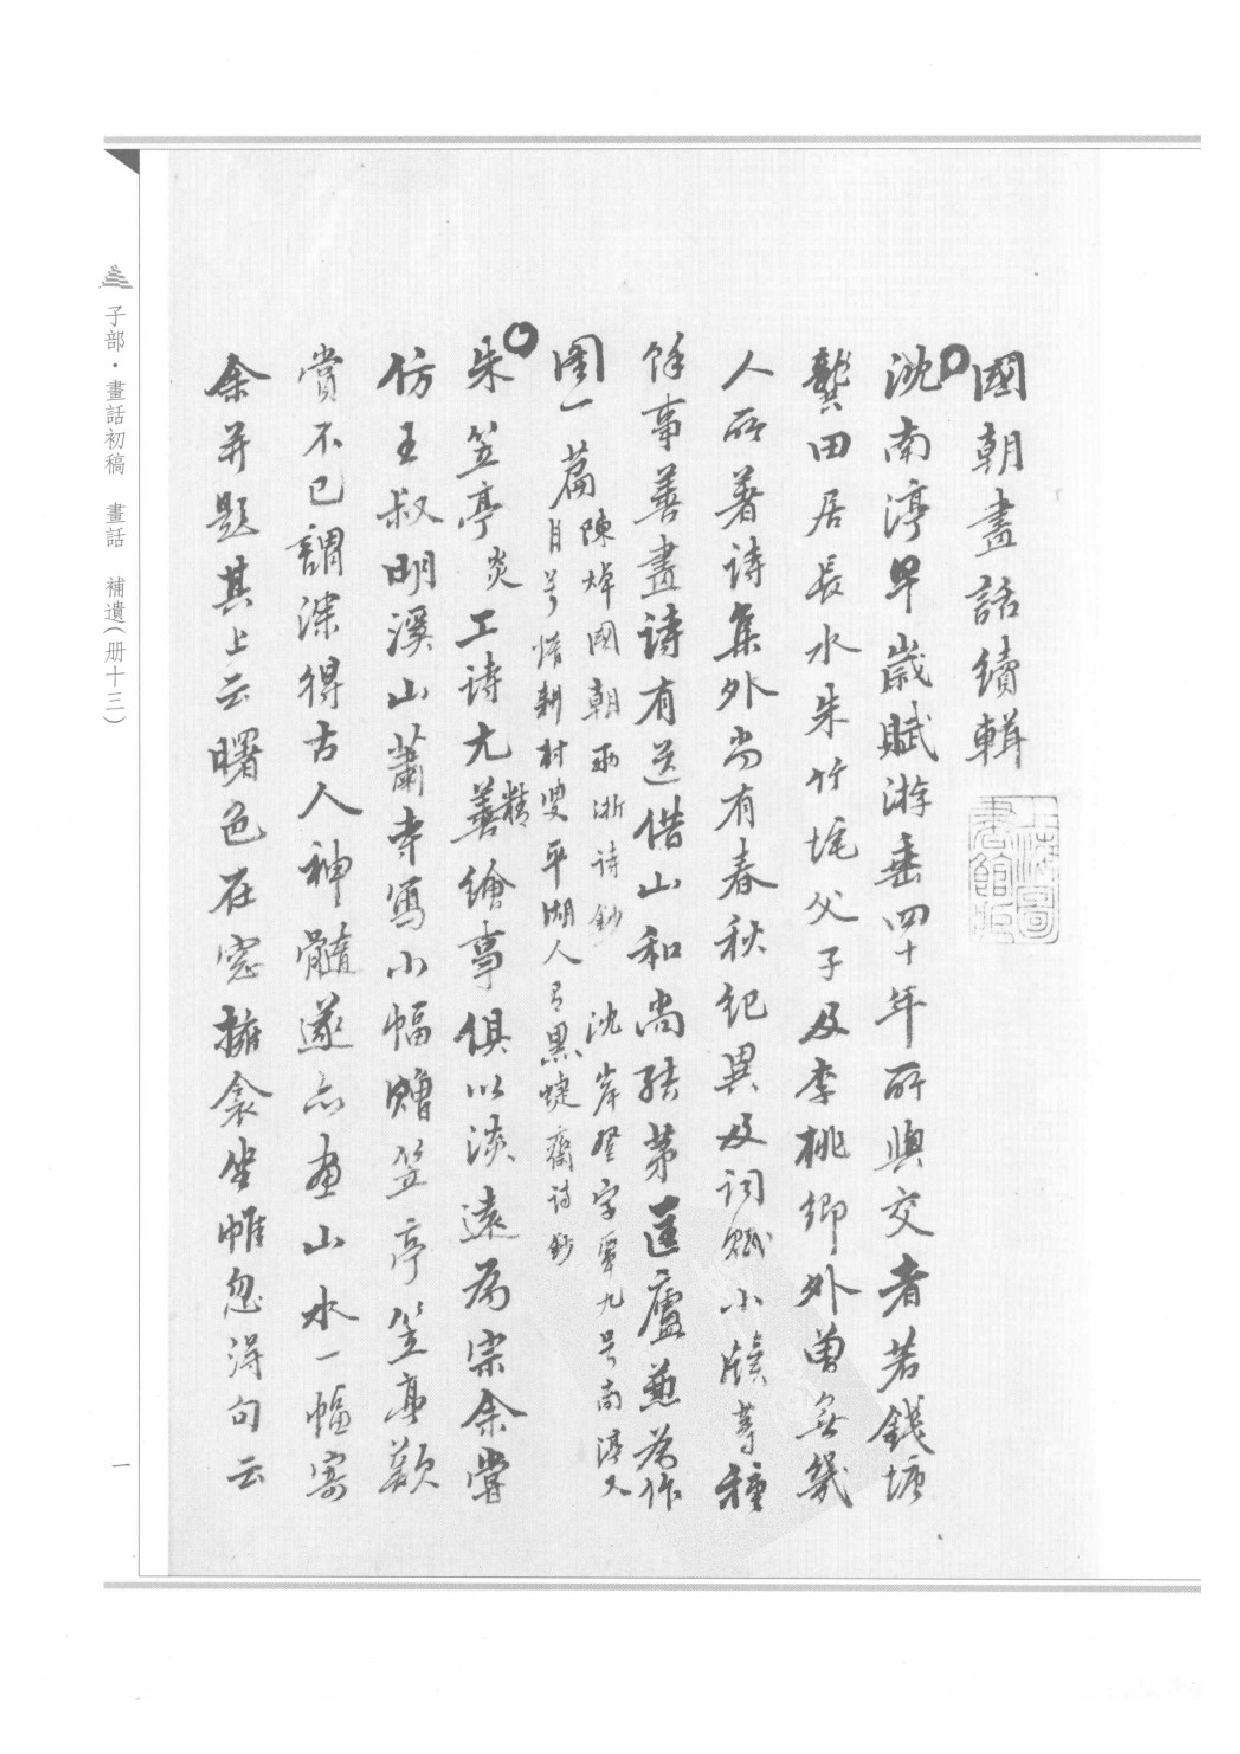 國朝畫話續輯
上海圖書館藏
沈南渟早歲賦游垂四十年所與交者若錢塘
龔田居長水朱竹垞父子及李桃鄉外曽無幾
人所著詩集外尚有春秋紀異及詞賦小牘等種
餘事善畫詩有送借山和尚結茅匡廬兼為作
圖一篇
陳焯國朝兩浙詩鈔 沈岸登字覃九号南渟又
自号惰耕村叟平湖人有黑蜨齋詩鈔
朱笠亭炎工詩尤善精繪事俱以淡遠為宗余嘗
仿王叔明溪山蕭寺寫小幅贈笠亭笠亭歎
賞不已謂深得古人神髓遂亦畫山水一幅寄
余并題其上云曙色在窓擁衾坐帷忽得句云
子部·畫話初稿 畫話 補遺(册十三)
一